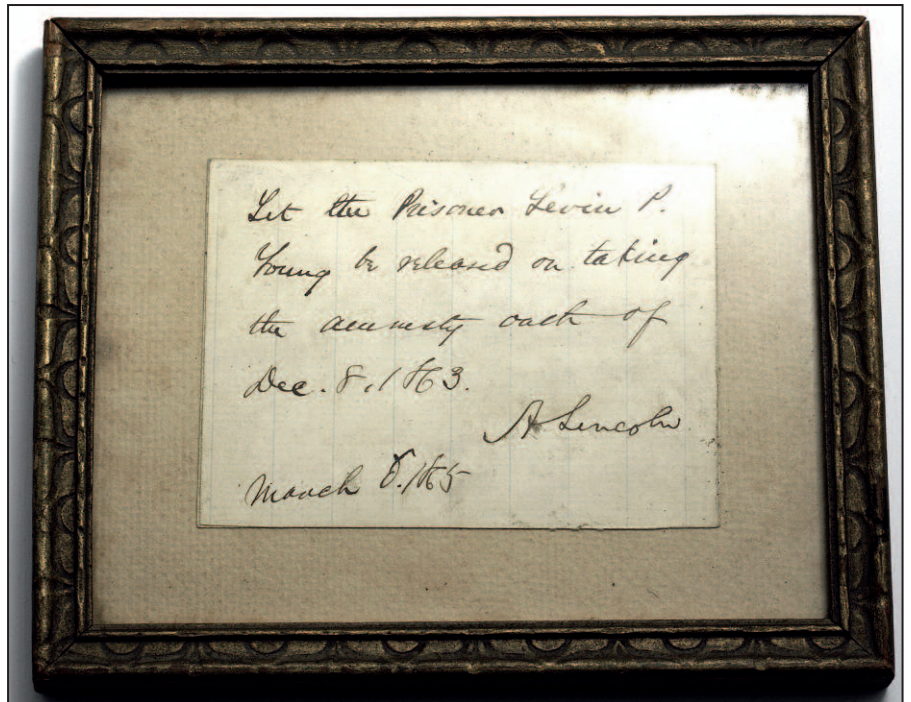 Let the Prisoner Levin P.
Young be released on taking
the amnesty oath of
Dec. 8, 1863.
A. Lincoln
March 8. 1865